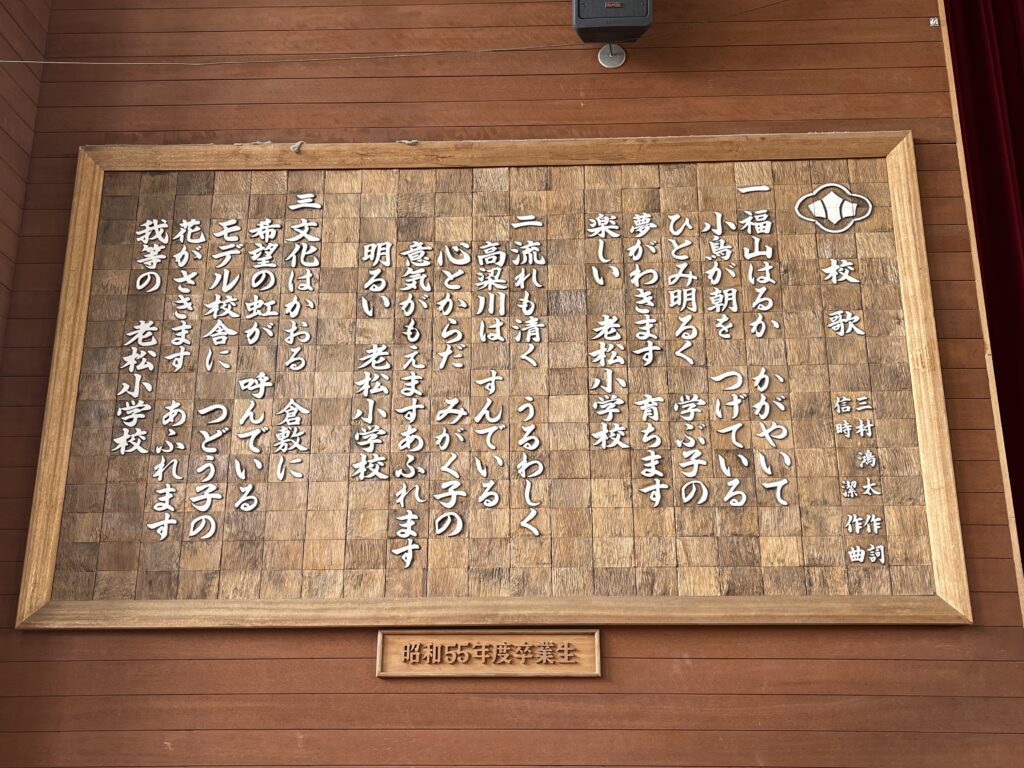 校歌
三村鴻太 作詞
信時潔 作曲
一 福山はるか かがやいて
小鳥が朝を つげている
ひとみ明るく 学ぶ子の
夢がわきます 育ちます
楽しい 老松小学校
二 流れも清く うるわしく
高梁川は すんでいる
心とからだ みがく子の
意気がもえます あふれます
明るい 老松小学校
三 文化はかおる 倉敷に
希望の虹が 呼んでいる
モデル校舎に つどう子の
花がさきます あふれます
我等の 老松小学校
昭和55年度卒業生